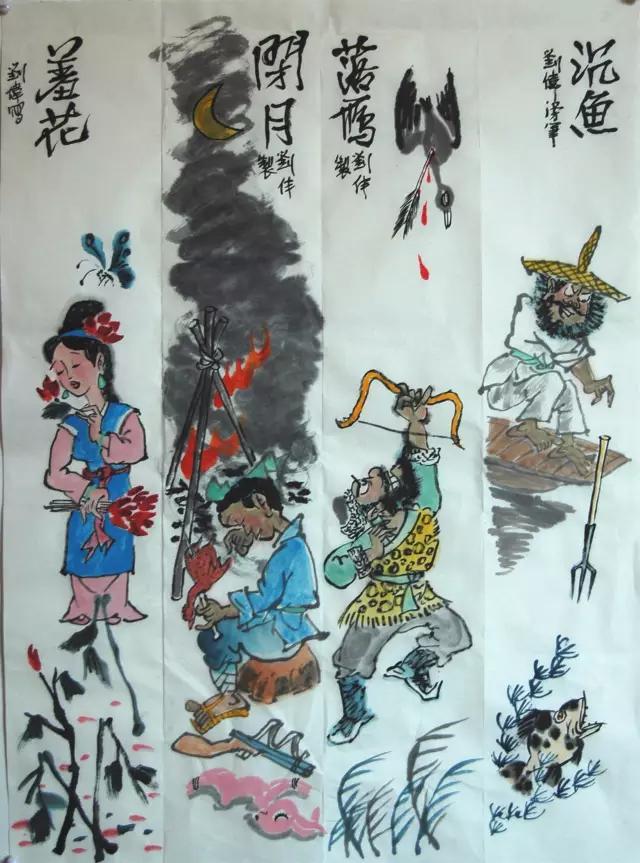 沉魚
劉偉
落鴈
劉伟
製
閉月
劉伟
製
羞花
劉偉寫